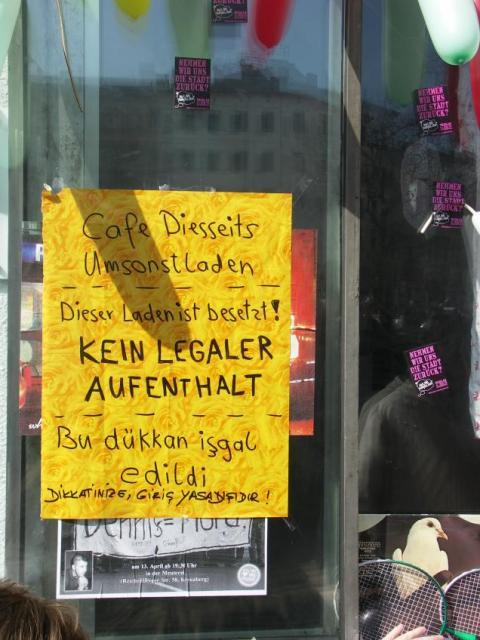 NEHMEN
WIR UNS
DIE STADT
ZURÜCK?
NEHMEN
WIR UNS
DIE STADT
ZURÜCK?
NEHMEN
WIR UNS
DIE STADT
ZURÜCK?
Cafe Diesseits
Umsonstladen
Dieser Laden ist besetzt!
KEIN LEGALER
AUFENTHALT
Bu dükkan işgal
edildi
DİKKATİNİZE, GİRİŞ YASAĞIDIR!
NEHMEN
WIR UNS
DIE STADT
ZURÜCK?
Dennis=Mord!
am 13. April ab 19:30 Uhr
in der Meuterei
(Reichenberger Str. 58, Kreuzberg)